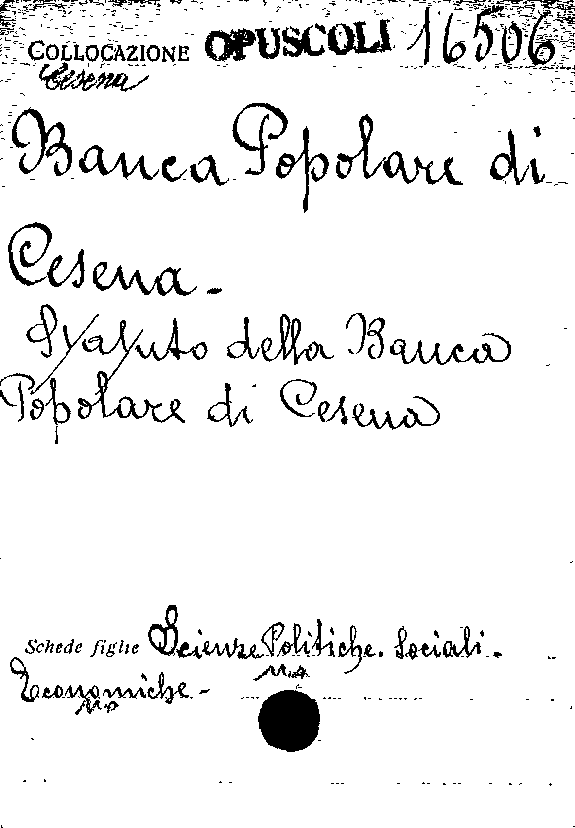 COLLOCAZIONE OPUSCOLI 16506
Cesena
Banca Popolare di
Cesena -
Statuto della Banca
Popolare di Cesena
Schede figlie Scienze Politiche. Sociali -
Economiche -